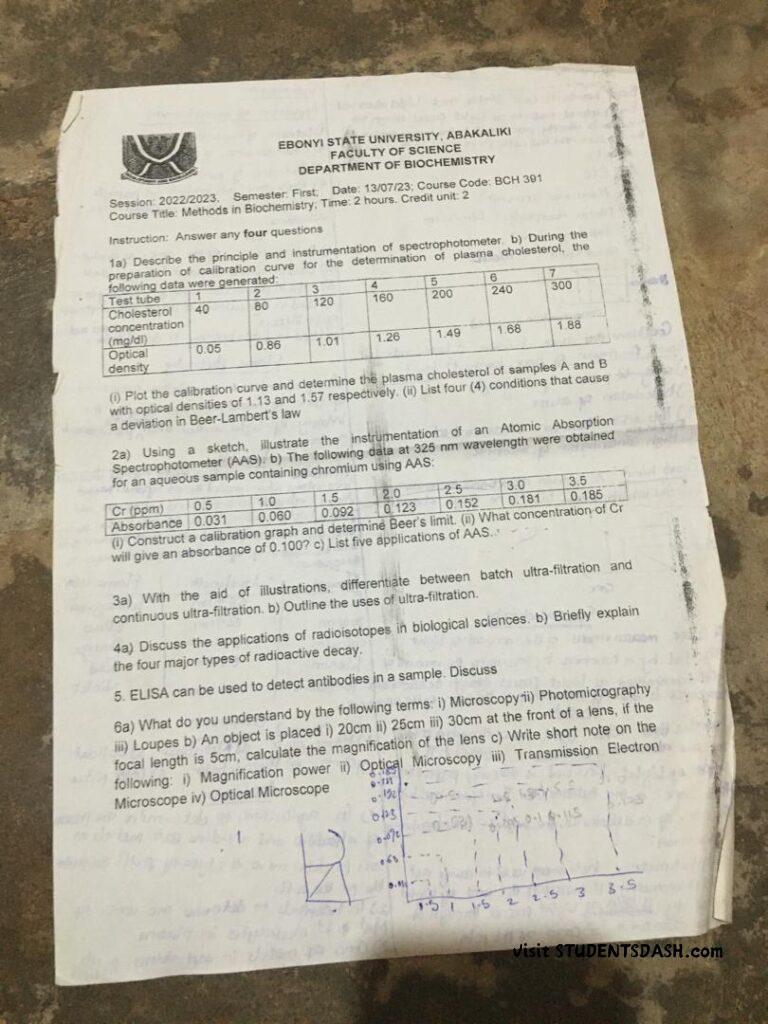 EBONYI STATE UNIVERSITY, ABAKALIKI
FACULTY OF SCIENCE
DEPARTMENT OF BIOCHEMISTRY
Session: 2022/2023, Semester: First; Date: 13/07/23; Course Code: BCH 391
Course Title: Methods in Biochemistry; Time: 2 hours. Credit unit: 2
Instruction: Answer any four questions
1a) Describe the principle and instrumentation of spectrophotometer. b) During the
preparation of calibration curve for the determination of plasma cholesterol, the
following data were generated:
Test tube 1 2 3 4 5 6 7
Cholesterol 40 80 120 160 200 240 300
concentration
(mg/dl)
Optical 0.05 0.86 1.01 1.26 1.49 1.68 1.88
density
(i) Plot the calibration curve and determine the plasma cholesterol of samples A and B
with optical densities of 1.13 and 1.57 respectively. (ii) List four (4) conditions that cause
a deviation in Beer-Lambert's law
2a) Using a sketch, illustrate the instrumentation of an Atomic Absorption
Spectrophotometer (AAS). b) The following data at 325 nm wavelength were obtained
for an aqueous sample containing chromium using AAS:
Cr (ppm) 0.5 1.0 1.5 2.0 2.5 3.0 3.5
Absorbance 0.031 0.060 0.092 0.123 0.152 0.181 0.185
(i) Construct a calibration graph and determine Beer's limit. (ii) What concentration of Cr
will give an absorbance of 0.100? c) List five applications of AAS.
3a) With the aid of illustrations, differentiate between batch ultra-filtration and
continuous ultra-filtration. b) Outline the uses of ultra-filtration.
4a) Discuss the applications of radioisotopes in biological sciences. b) Briefly explain
the four major types of radioactive decay.
5. ELISA can be used to detect antibodies in a sample. Discuss
6a) What do you understand by the following terms: i) Microscopy ii) Photomicrography
iii) Loupes b) An object is placed i) 20cm ii) 25cm iii) 30cm at the front of a lens, if the
focal length is 5cm, calculate the magnification of the lens c) Write short note on the
following: i) Magnification power ii) Optical Microscopy iii) Transmission Electron
Microscope iv) Optical Microscope
1 1.5 2 2.5 3 3.5
visit STUDENTSDASH.com